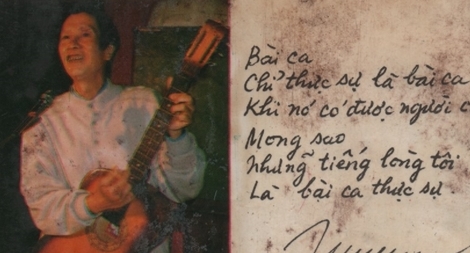 Bài ca
Chỉ thực sự là bài ca
Khi nó có được người
Mong sao
Những tiếng lòng tôi
Là bài ca thực sự